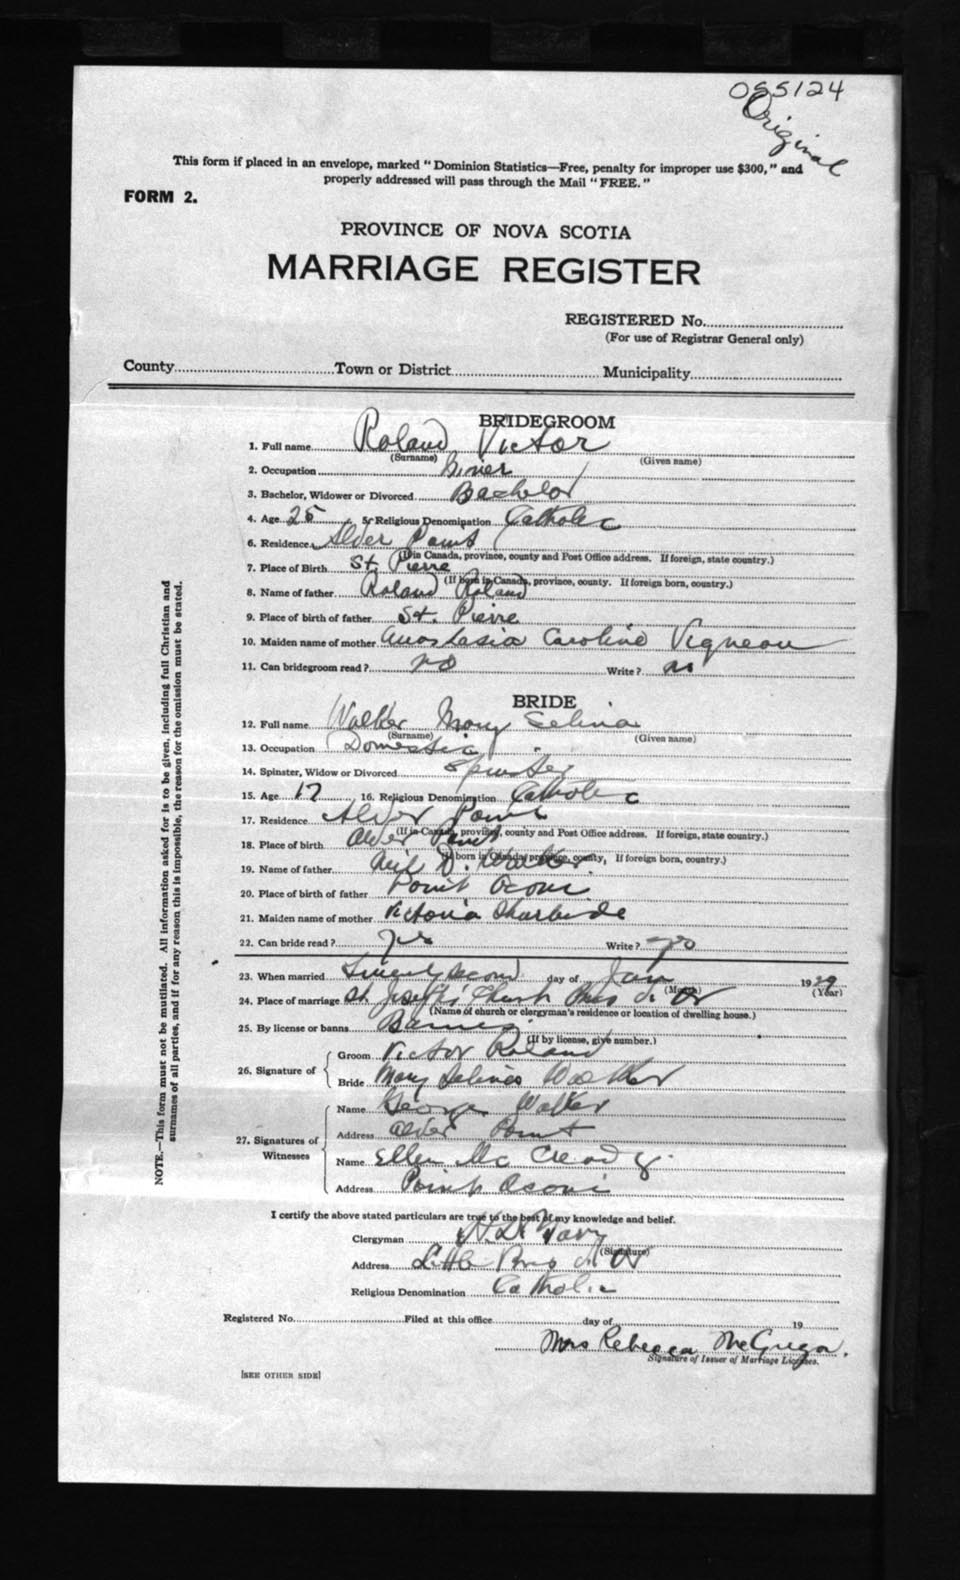 085124
Original
This form if placed in an envelope, marked "Dominion Statistics—Free, penalty for improper use $300," and
properly addressed will pass through the Mail "FREE."
FORM 2.
PROVINCE OF NOVA SCOTIA
MARRIAGE REGISTER
REGISTERED No.
(For use of Registrar General only)
County Town or District Municipality
NOTE.—This form must not be mutilated. All information asked for is to be given, including full Christian and
surnames of all parties, and if for any reason this is impossible, the reason for the omission must be stated.
BRIDEGROOM
1. Full name Roland Victor
(Surname) (Given name)
2. Occupation
3. Bachelor, Widower or Divorced Bachelor
4. Age 25 5. Religious Denomination Catholic
6. Residence Alder Point
(If in Canada, province, county and Post Office address. If foreign, state country.)
7. Place of Birth St. Pierre
(If born in Canada, province, county. If foreign born, country.)
8. Name of father Roland Roland
9. Place of birth of father St. Pierre
10. Maiden name of mother Anastasia Caroline Vigneau
11. Can bridegroom read? no Write? no
BRIDE
12. Full name Walker Mary Selina
(Surname) (Given name)
13. Occupation Domestic
14. Spinster, Widow or Divorced Spinster
15. Age 17 16. Religious Denomination Catholic
17. Residence Alder Point
(If in Canada, province, county and Post Office address. If foreign, state country.)
18. Place of birth Alder Point
(If born in Canada, province, county, If foreign born, country.)
19. Name of father Neil J. Walker
20. Place of birth of father Point Aconi
21. Maiden name of mother Victoria
22. Can bride read? yes Write? yes
23. When married Twenty second day of Jan 1929
(Month) (Year)
24. Place of marriage St. Joseph's Church Bras d'Or
(Name of church or clergyman's residence or location of dwelling house.)
25. By license or banns Banns
(If by license, give number.)
26. Signature of
Groom Victor Roland
Bride Mary Selina Walker
27. Signatures of Witnesses
Name George Walker
Address Alder Point
Name Ellen Mc Cready
Address Point Aconi
I certify the above stated particulars are true to the best of my knowledge and belief.
Clergyman
(Signature)
Address Little Bras d'Or
Religious Denomination Catholic
Registered No. Filed at this office day of 19
Mrs Rebecca McGregor.
Signature of Issuer of Marriage Licenses.
[SEE OTHER SIDE]